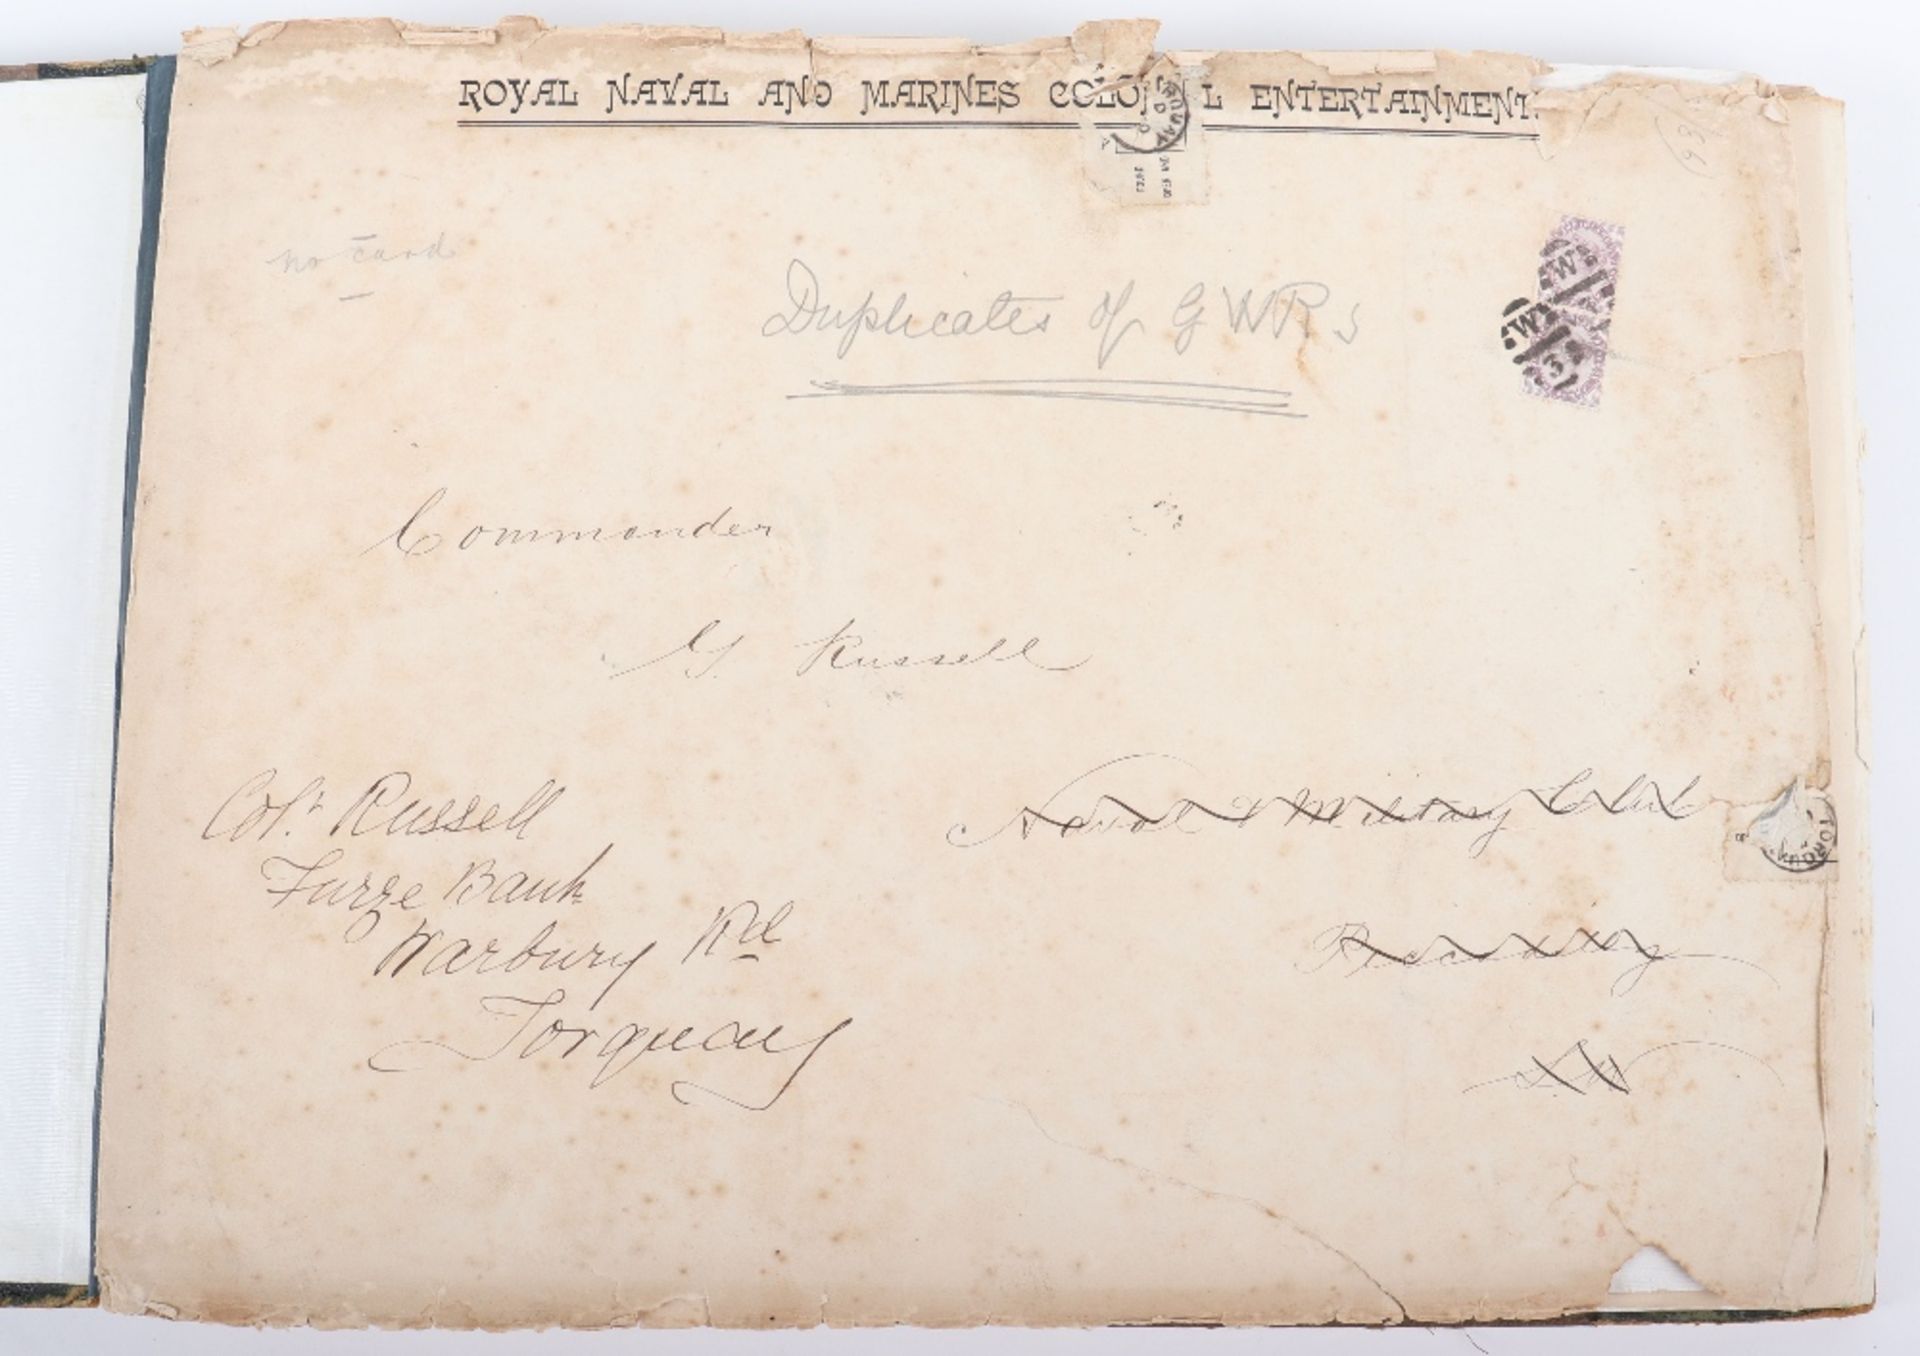 ROYAL NAVAL AND MARINES COLO L ENTERTAINMENT
no card
Duplicates of GWRs
W
W
38
Commander
G. Russell
Naval & Military Club
Piccadilly
SW
Col. Russell
Furze Bank
Warbury Rd
Torquay
TORQ